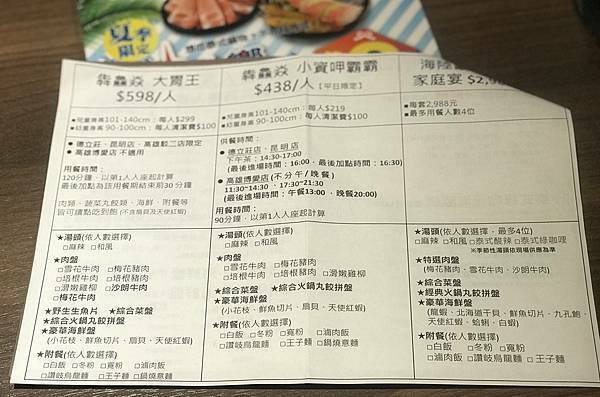 夏季
限定
犇鱻焱 大胃王
$598/人
■兒童身高101-140cm：每人$299
■幼童身高 90-100cm：每人清潔費$100
● 德立莊、昆明店、高雄館二店限定
● 高雄博愛店 不適用
用餐時間：
120分鐘，以第1人人座起計算
最後加點為該用餐期結束前30分鐘
肉類、蔬菜丸餃類、海鮮、附餐等
皆可續點吃到飽(不含扇貝及天使紅蝦)
★湯頭(依人數選擇)
□麻辣 □和風
★肉盤
□雪花牛肉 □梅花豬肉
□培根牛肉 □培根豬肉
□滑嫩雞柳 □沙朗牛肉
□梅花牛肉
★野生生魚片 ★綜合菜盤
★綜合火鍋丸餃拼盤
★豪華海鮮盤
(小花枝、鮮魚切片、扇貝、天使紅蝦)
★附餐(依人數選擇)
□白飯 □冬粉 □寬粉 □滷肉飯
□讚岐烏龍麵 □王子麵 □鍋燒意麵
犇鱻焱 小資呷霸霸
$438/人【平日限定】
■兒童身高101-140cm：每人$219
■幼童身高 90-100cm：每人清潔費$100
供餐時間：
● 德立莊店、昆明店
下午茶：14:30-17:00
(最後進場時間：16:00，最後加點時間：16:30)
● 高雄博愛店(不分午/晚餐)
11:30~14:30 、17:30~21:30
(最後進場時間：午餐13:00 、晚餐20:00)
用餐時間：
90分鐘，以第1人人座起計算
★湯頭(依人數選擇)
□麻辣 □和風
★肉盤
□雪花牛肉 □梅花豬肉
□培根牛肉 □培根豬肉 □滑嫩雞柳
★綜合菜盤 ★綜合火鍋丸餃拼盤
★豪華海鮮盤
(小花枝、鮮魚切片、扇貝、天使紅蝦)
★附餐(依人數選擇)
□白飯 □冬粉 □寬粉 □滷肉飯
□讚岐烏龍麵 □王子麵 □鍋燒意麵
海陸
家庭宴 $2,9
■每套2,988元
■最多用餐人數4位
★湯頭(依人數選擇，最多4位)
□麻辣 □和風 □泰式酸辣 □泰式綠咖哩
*季節性湯頭依現場供應為準
★特選肉盤
(梅花豬肉、雪花牛肉、沙朗牛肉)
★綜合菜盤
★經典火鍋丸餃拼盤
★豪華海鮮盤
(龍蝦、北海道干貝、鮮魚切片、九孔鮑、
天使紅蝦、蛤蜊、白蝦)
★附餐(依人數選擇)
□白飯 □冬粉 □寬粉
□滷肉飯 □讚岐烏龍麵 □王子麵